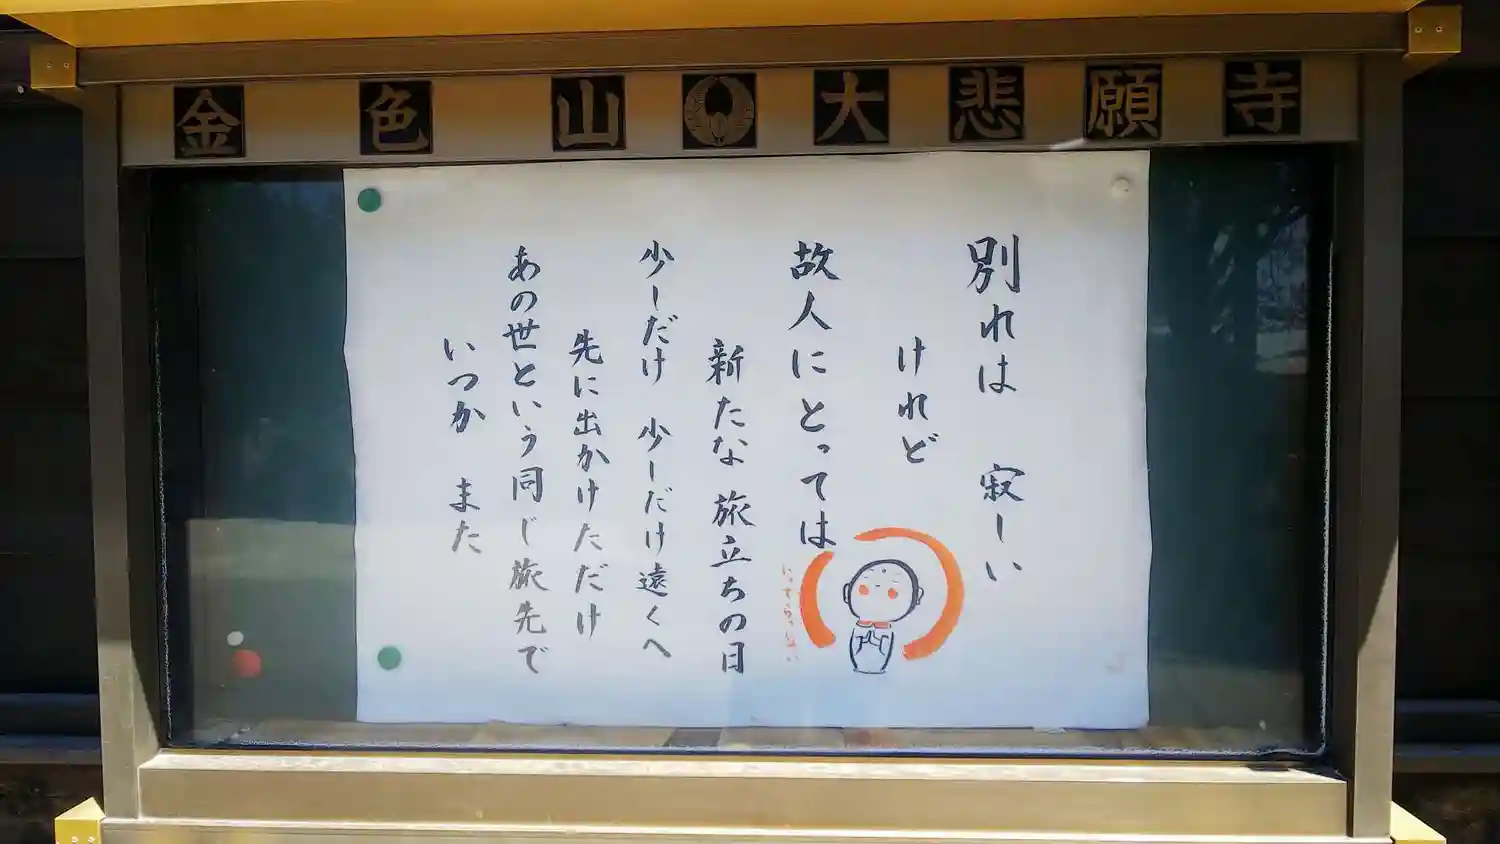 金色山 大悲願寺
別れは 寂しい
けれど
故人にとっては
新たな旅立ちの日
少しだけ 少しだけ遠くへ
先に出かけただけ
あの世という同じ旅先で
いつか また